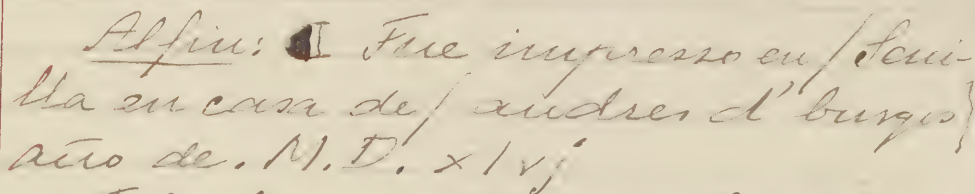 Al fin: ¶ Fue impresso en / Seui-
lla en casa de / andres d' burgos /
año de. M. D. xlvj